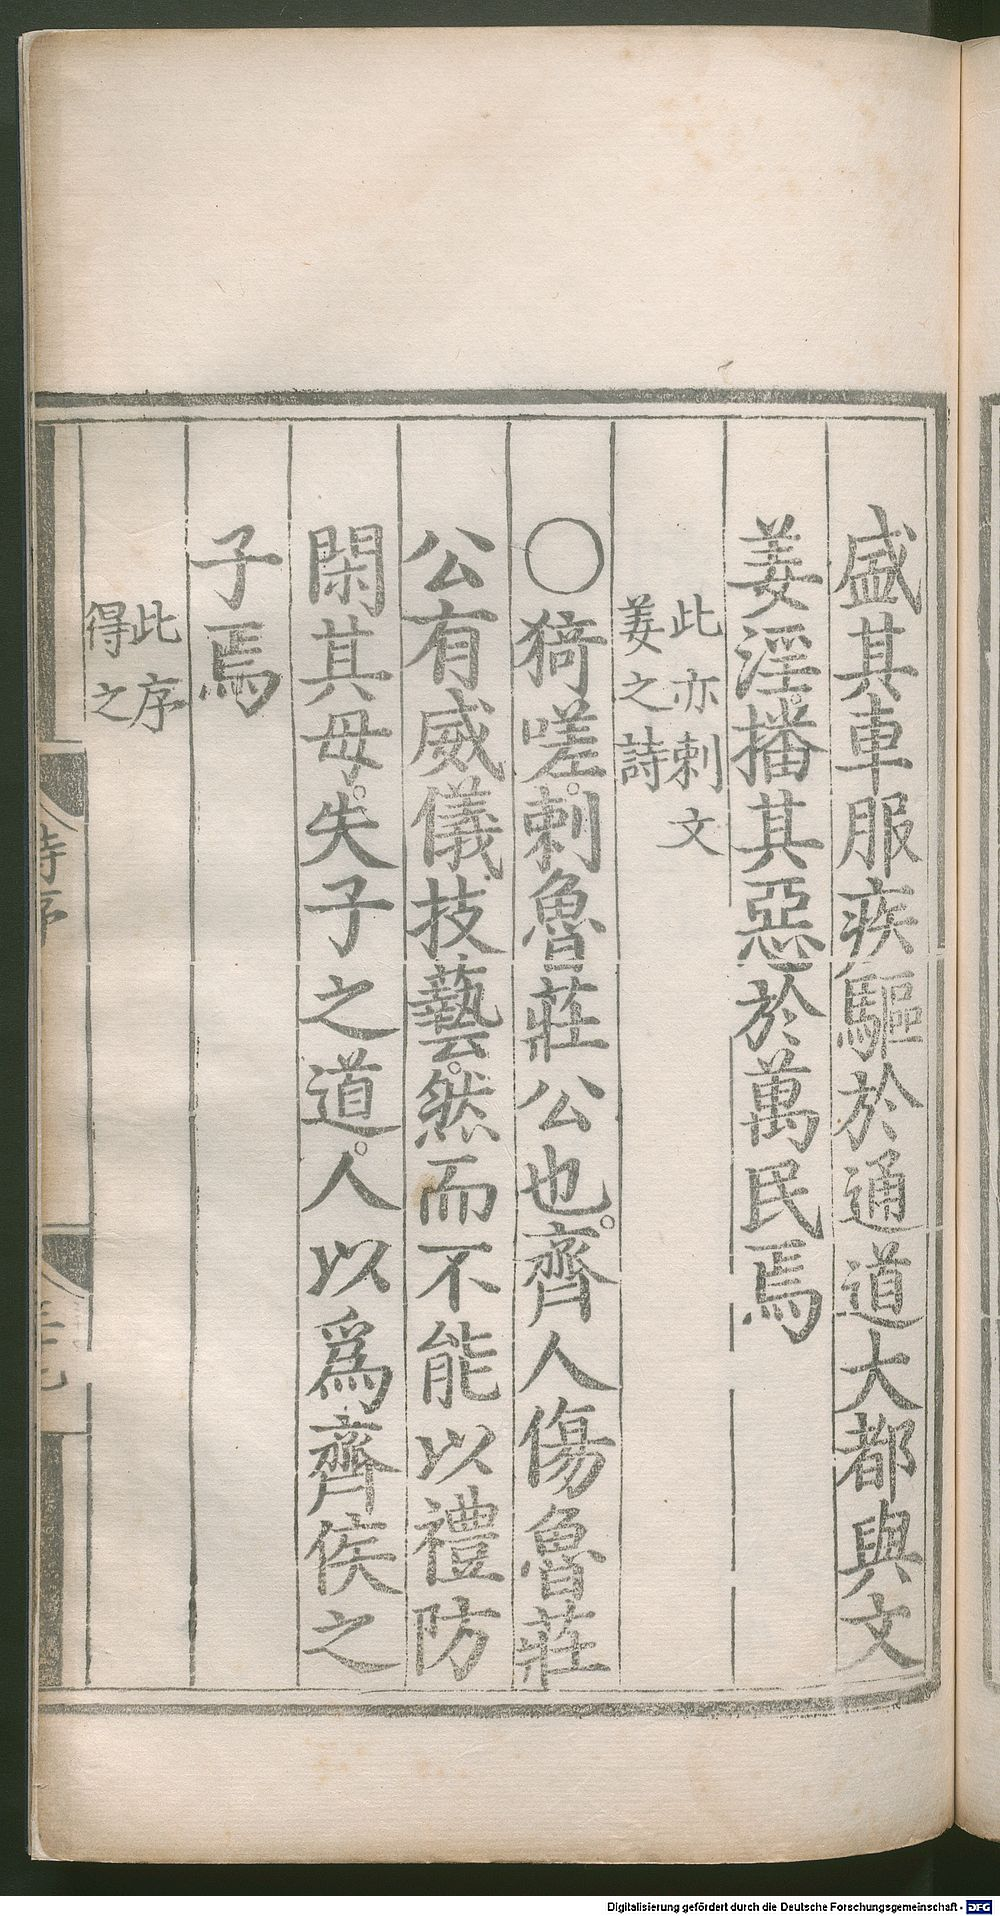 盛其車服疾驅於通道大都與文
姜淫播其惡於萬民焉
此亦刺文
姜之詩
○猗嗟。刺魯莊公也。齊人傷魯莊
公有威儀技藝。然而不能以禮防
閑其母。失子之道。人以爲齊侯之
子焉
此序
得之
詩序
Digitalisierung gefördert durch die Deutsche Forschungsgemeinschaft - DFG